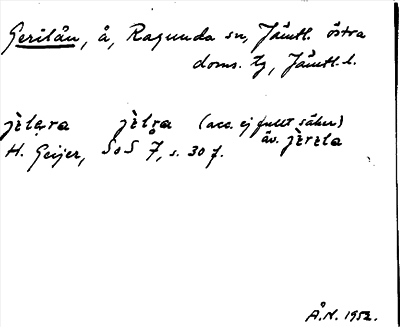 Gerilån, å, Ragunda sn, Jämtl. östra
doms. tg, Jämtl. l.
jèlạra jèlr̥a (acc. ej fullt säker)
äv. jèrɛla
H. Geijer, SoS 7, s. 30 f.
Å.N. 1952.